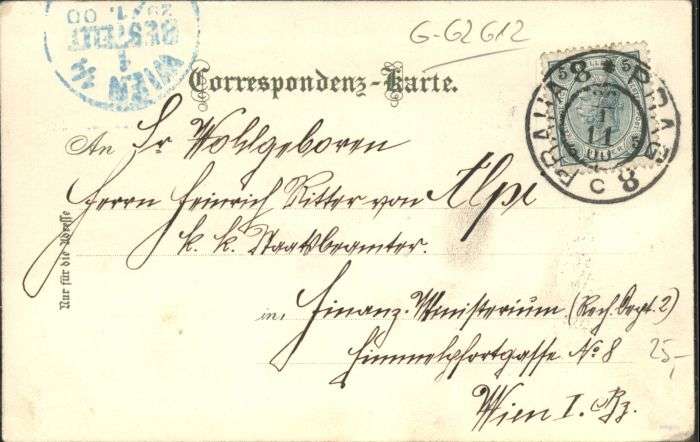 G-62612
WIEN 1/1
BESTELLT
1.00
Correspondenz-Karte.
5 5
PRAHA 8 * PRAG 8
11
C
An Sr Wohlgeboren
Herrn Heinrich Ritter von Alpi
k. k. Staatsbeamter.
Nur für die Adresse
in, Finanz-Ministerium (Rech. Dept. 2)
Himmelpfortgasse No 8
25,-
Wien I. Bz.